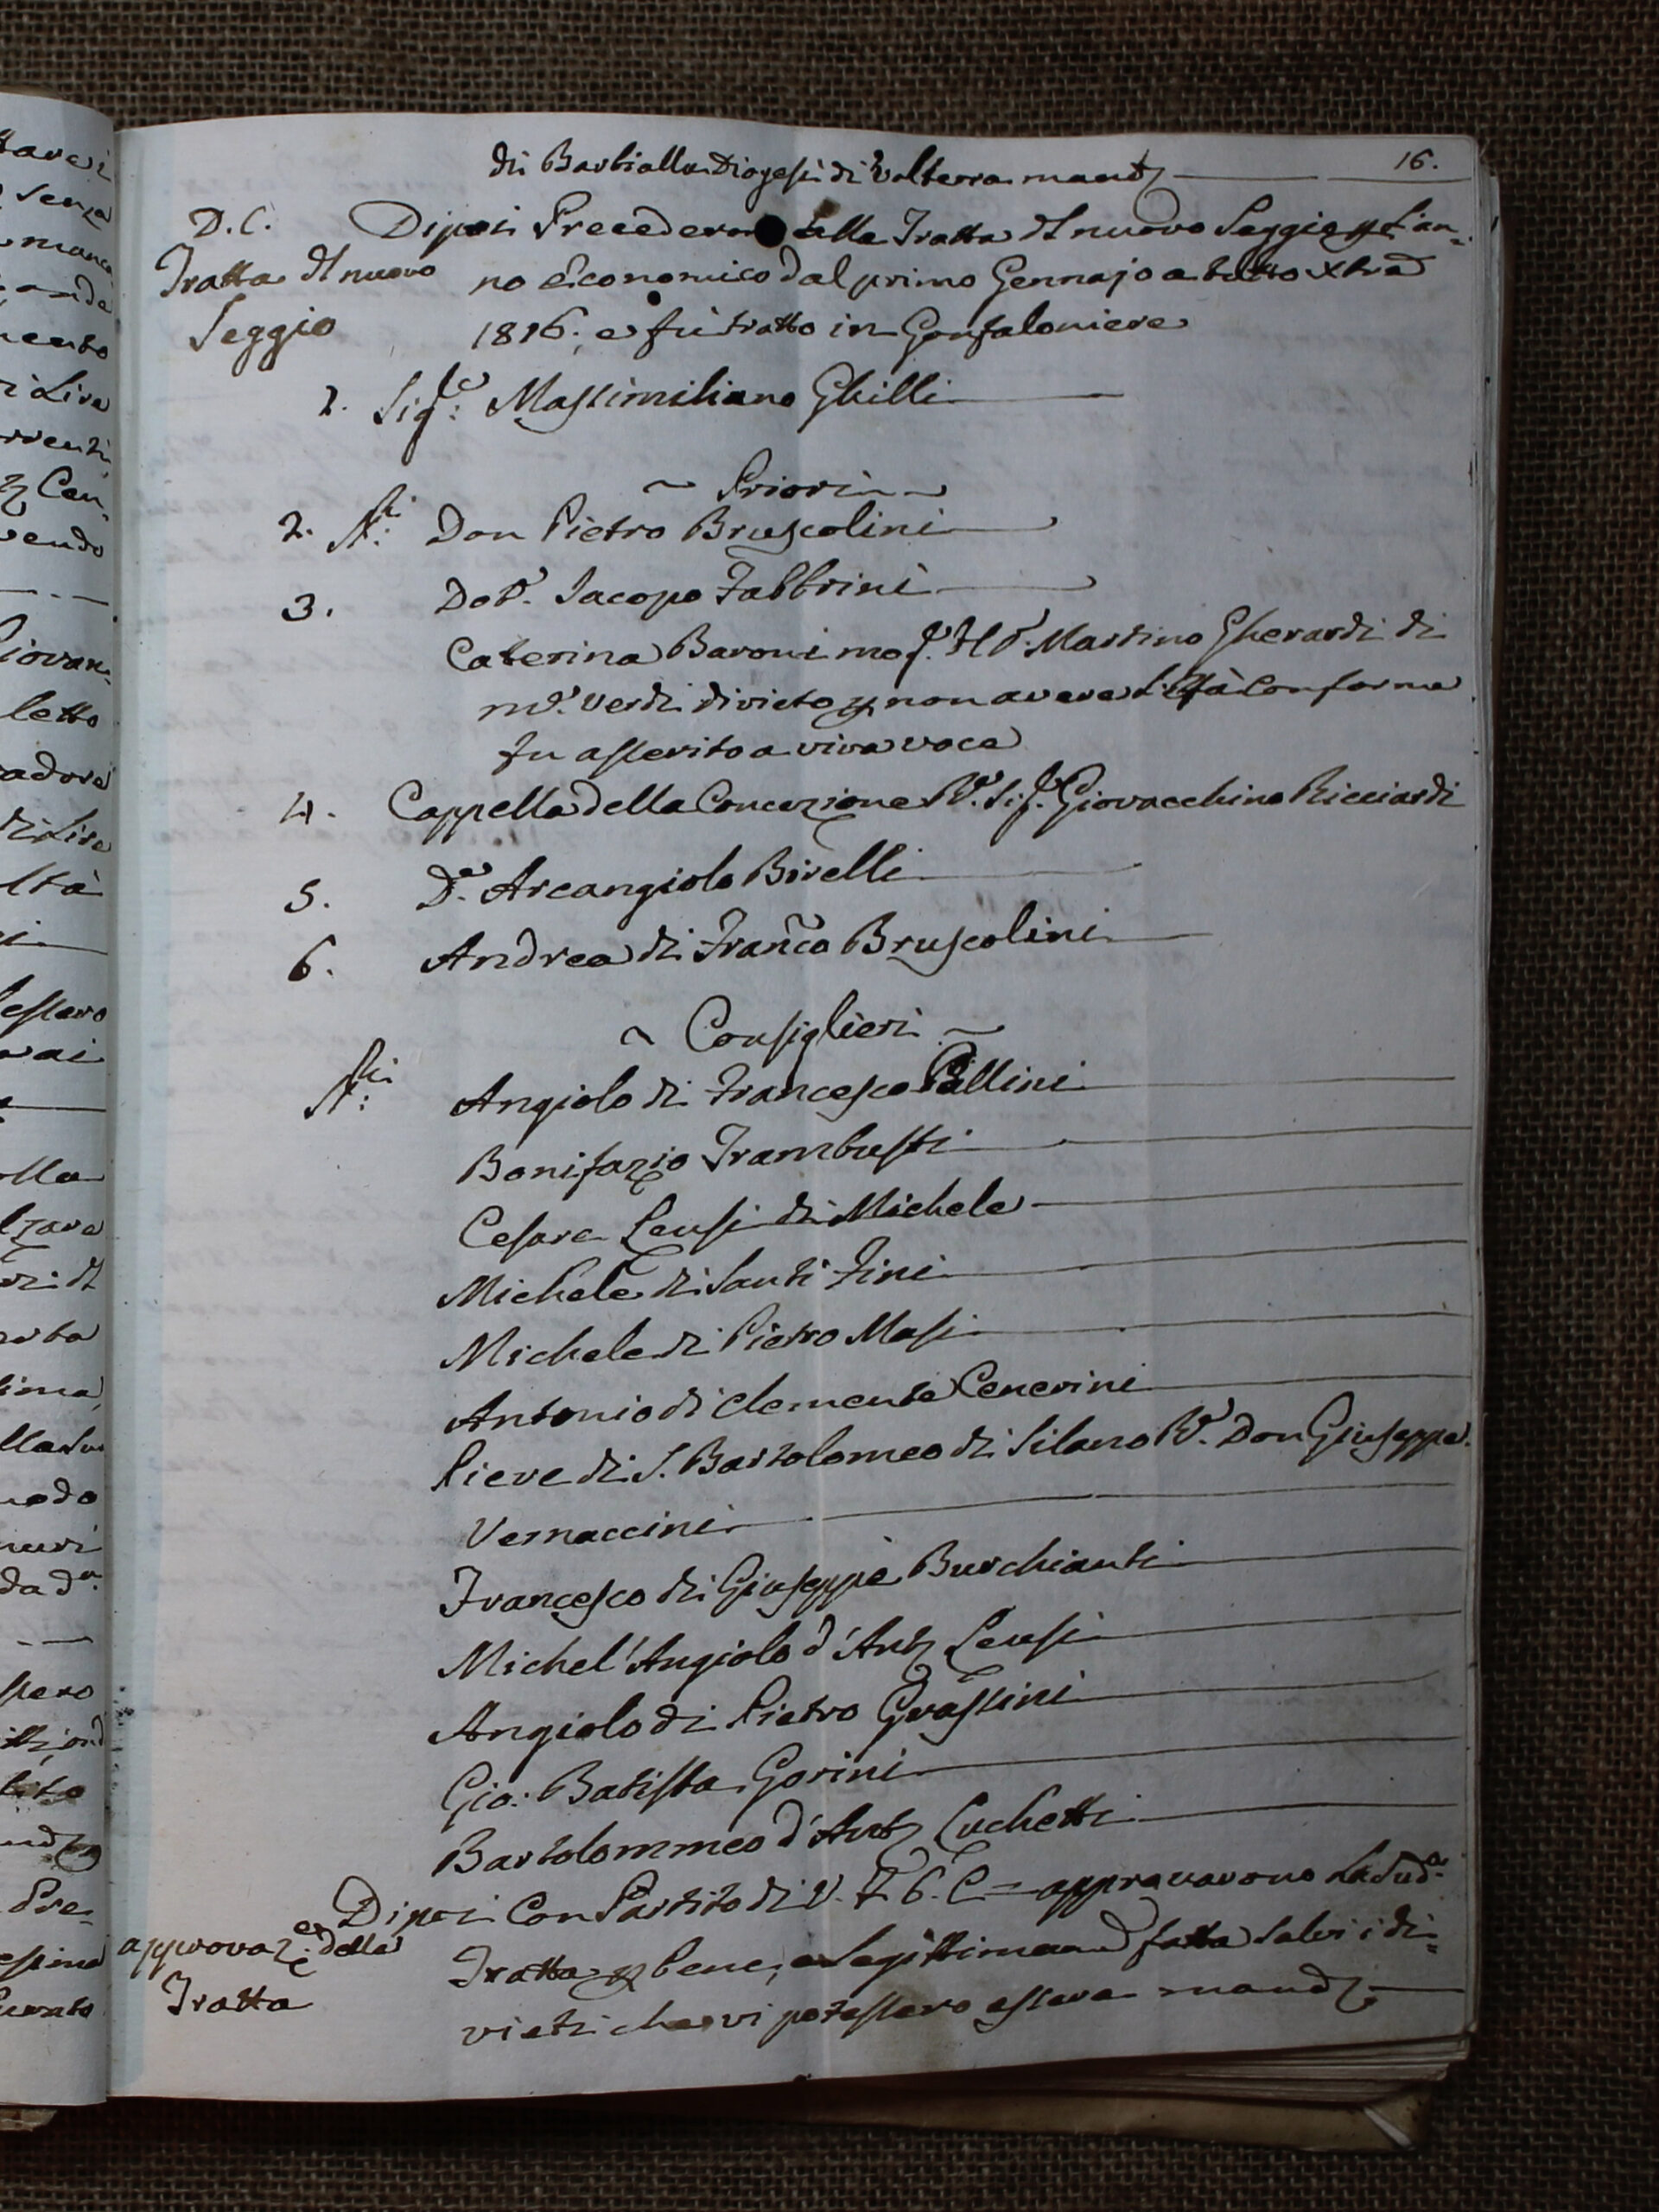 16.
di Barbialla Diogesi di Volterra mand
D.C. Dipoi Precederono alla Tratta del nuovo Seggio p l'an-
Tratta del nuovo Seggio
no Economico dal primo Gennajo a tutto Xbre
1816. e fù tratto in Gonfaloniere
1. Sig:re Massimiliano Ghilli
~ Priori ~
2. Sig:ri Don Pietro Bruscolini
3. Dott. Jacopo Fabbrini
Caterina Baroni mog. del Martino Gherardi di
verdi divieto p non avere l'Età Conforme
fu asserito a viva voce
4. Cappella della Concezione Re. Sig. Giovacchino Ricciardi
5. De. Arcangiolo Birelli
6. Andrea di Franco Bruscolini
~ Consiglieri ~
Sig:ri Angiolo di Francesco Pallini
Bonifazio Trambusti
Cesare Leusi di Michele
Michele di Santi Fini
Michele di Pietro Masi
Antonio di Clemente Cenerini
Pieve di S. Bartolomeo di Silano Re. Don Giuseppe
Vernaccini
Francesco di Giuseppe Burchianti
Michel'Angiolo d'Ant Leusi
Angiolo di Pietro Grassini
Gio: Batista Gorini
Bartolommeo d'Ant Luchetti
Dipoi Con Partito di V. F. 6. C = approvarono la sud.a
approvaz:e della Tratta
Tratta p bene, e Legittimam fatta salvi i di-
vieti che vi potessero essere mand